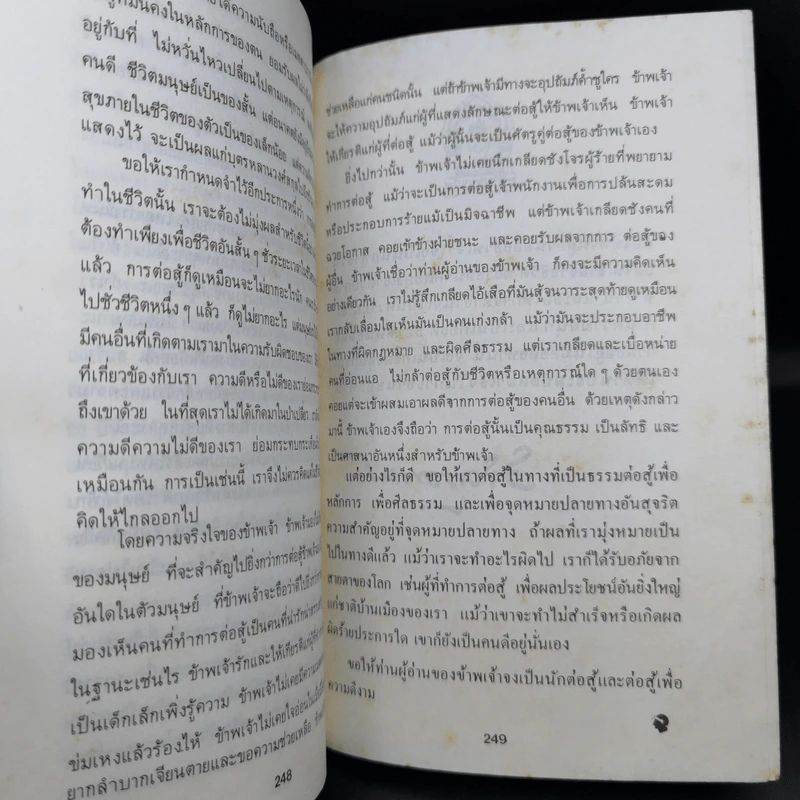 อยู่กับที่ ไม่หวั่นไหวเปลี่ยนไปตามเหตุการณ์
คนดี ชีวิตมนุษย์เป็นของสั้น แต่อนาคต
สุขภายในชีวิตของตัวเป็นของเล็กน้อย แต่
แสดงไว้ จะเป็นผลแก่บุตรหลานวงศ์สกุล
ขอให้เรากำหนดจำไว้อีกประการหนึ่งว่า
ทำในชีวิตนั้น เราจะต้องไม่มุ่งผลสำหรับชีวิต
ต้องทำเพียงเพื่อชีวิตอันสั้น ๆ ชั่วระยะเวลา
แล้ว การต่อสู้ก็ดูเหมือนจะไม่ยากอะไรนัก
ไปชั่วชีวิตหนึ่ง ๆ แล้ว ก็ดูไม่ยากอะไร แต่มนุษย์
มีคนอื่นที่เกิดตามเรามาในความรับผิดชอบของเรา
ที่เกี่ยวข้องกับเรา ความดีหรือไม่ดีของเราย่อม
ถึงเขาด้วย ในที่สุดเราไม่ได้เกิดมาในป่าเปลี่ยว
ความดีความไม่ดีของเรา ย่อมกระทบกระเทือน
เหมือนกัน การเป็นเช่นนี้ เราจึงไม่ควรคิด
คิดให้ไกลออกไป
โดยความจริงใจของข้าพเจ้า ข้าพเจ้า
ของมนุษย์ ที่จะสำคัญไปยิ่งกว่าการต่อสู้
อันใดในตัวมนุษย์ ที่ข้าพเจ้าจะถือว่าดีไปยิ่งกว่า
มองเห็นคนที่ทำการต่อสู้เป็นคนที่น่ารักน่า
ในฐานะเช่นไร ข้าพเจ้ารักและให้เกียรติแก่ผู้
เป็นเด็กเล็กเพิ่งรู้ความ ข้าพเจ้าไม่เคยมีความ
ข่มเหงแล้วร้องไห้ ข้าพเจ้าไม่เคยใจอ่อนใน
ยากลำบากเจียนตายและขอความช่วยเหลือ
248
ช่วยเหลือแก่คนชนิดนั้น แต่ถ้าข้าพเจ้ามีทางจะอุปถัมภ์ค้ำชูใคร ข้าพเจ้า
จะให้ความอุปถัมภ์แก่ผู้ที่แสดงลักษณะต่อสู้ให้ข้าพเจ้าเห็น ข้าพเจ้า
ให้เกียรติแก่ผู้ที่ต่อสู้ แม้ว่าผู้นั้นจะเป็นศัตรูคู่ต่อสู้ของข้าพเจ้าเอง
ยิ่งไปกว่านั้น ข้าพเจ้าไม่เคยนึกเกลียดชังโจรผู้ร้ายที่พยายาม
ทำการต่อสู้ แม้ว่าจะเป็นการต่อสู้เจ้าพนักงานเพื่อการปล้นสะดม
หรือประกอบการร้ายแม้เป็นมิจฉาชีพ แต่ข้าพเจ้าเกลียดชังคนที่
ฉวยโอกาส คอยเข้าข้างฝ่ายชนะ และคอยรับผลจากการ ต่อสู้ของ
ผู้อื่น ข้าพเจ้าเชื่อว่าท่านผู้อ่านของข้าพเจ้า ก็คงจะมีความคิดเห็น
อย่างเดียวกัน เราไม่รู้สึกเกลียดไอ้เสือที่มันสู้จนวาระสุดท้ายดูเหมือน
เรากลับเลื่อมใสเห็นมันเป็นคนเก่งกล้า แม้ว่ามันจะประกอบอาชีพ
ในทางที่ผิดกฎหมาย และผิดศีลธรรม แต่เราเกลียดและเบื่อหน่าย
คนที่อ่อนแอ ไม่กล้าต่อสู้กับชีวิตหรือเหตุการณ์ใด ๆ ด้วยตนเอง
คอยแต่จะเข้าผสมเอาผลดีจากการต่อสู้ของคนอื่น ด้วยเหตุดังกล่าว
มานี้ ข้าพเจ้าเองจึงถือว่า การต่อสู้นั้นเป็นคุณธรรม เป็นลัทธิ และ
เป็นศาสนาอันหนึ่งสำหรับข้าพเจ้า
แต่อย่างไรก็ดี ขอให้เราต่อสู้ในทางที่เป็นธรรมต่อสู้เพื่อ
หลักการ เพื่อศีลธรรม และเพื่อจุดหมายปลายทางอันสุจริต
ความสำคัญอยู่ที่จุดหมายปลายทาง ถ้าผลที่เรามุ่งหมายเป็น
ไปในทางดีแล้ว แม้ว่าเราจะทำอะไรผิดไป เราก็ได้รับอภัยจาก
สายตาของโลก เช่นผู้ที่ทำการต่อสู้ เพื่อผลประโยชน์อันยิ่งใหญ่
แก่ชาติบ้านเมืองของเรา แม้ว่าเขาจะทำไม่สำเร็จหรือเกิดผล
ผิดร้ายประการใด เขาก็ยังเป็นคนดีอยู่นั่นเอง
ขอให้ท่านผู้อ่านของข้าพเจ้าจงเป็นนักต่อสู้และต่อสู้เพื่อ
ความดีงาม
249